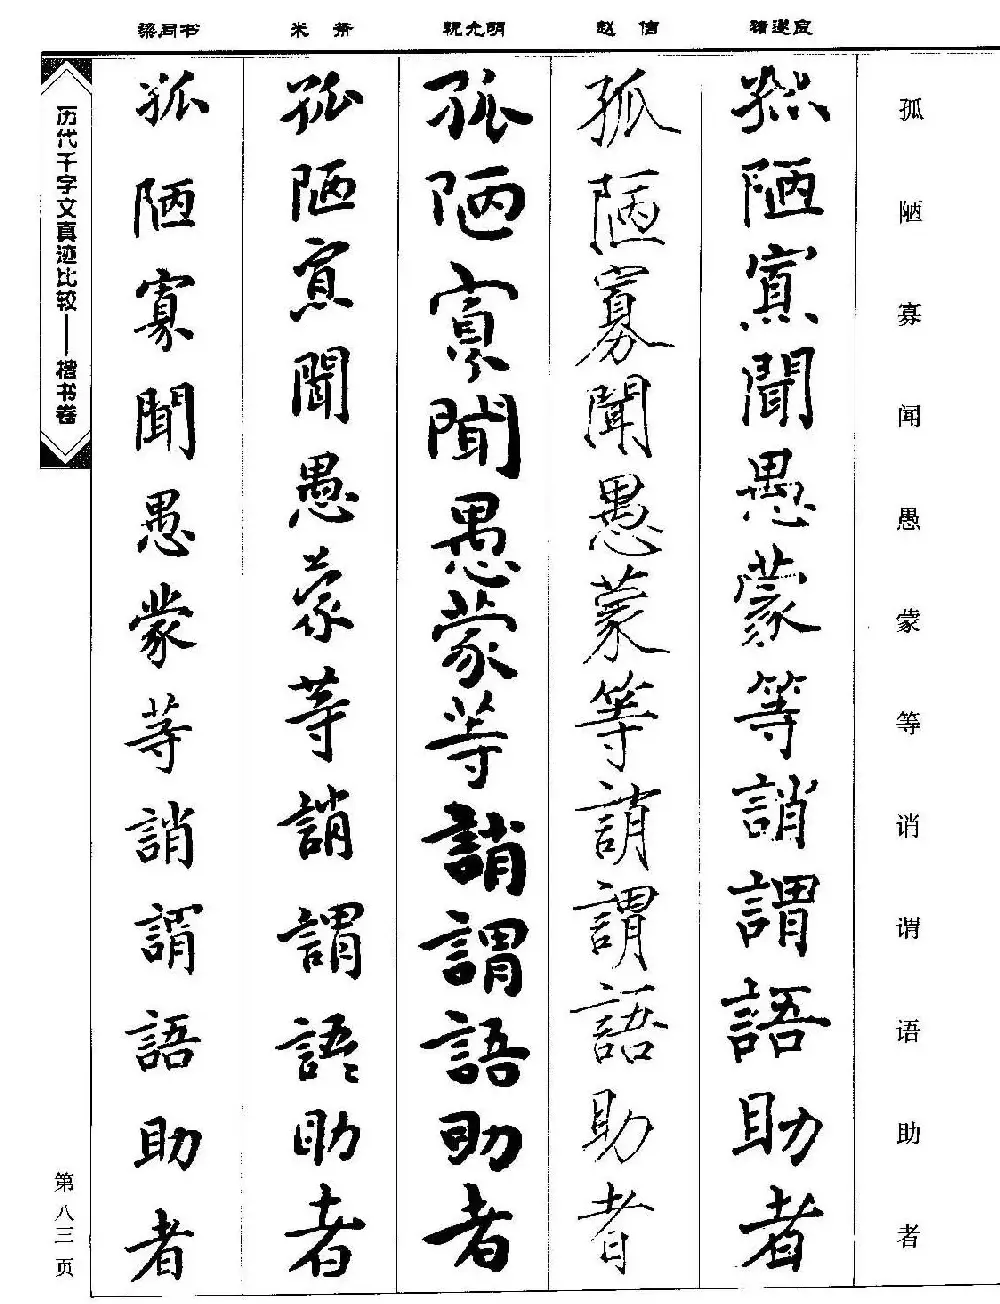 梁同书 米芾 祝允明 赵佶 褚遂良
孤陋寡闻愚蒙等诮谓语助者
孤陋寡聞愚蒙等誚謂語助者
孤陋寡聞愚蒙等誚謂語助者
孤陋寡聞愚蒙等誚謂語助者
孤陋寡聞愚蒙等誚謂語助者
孤陋寡聞愚蒙等誚謂語助者
历代千字文真迹比较——楷书卷
第八三页